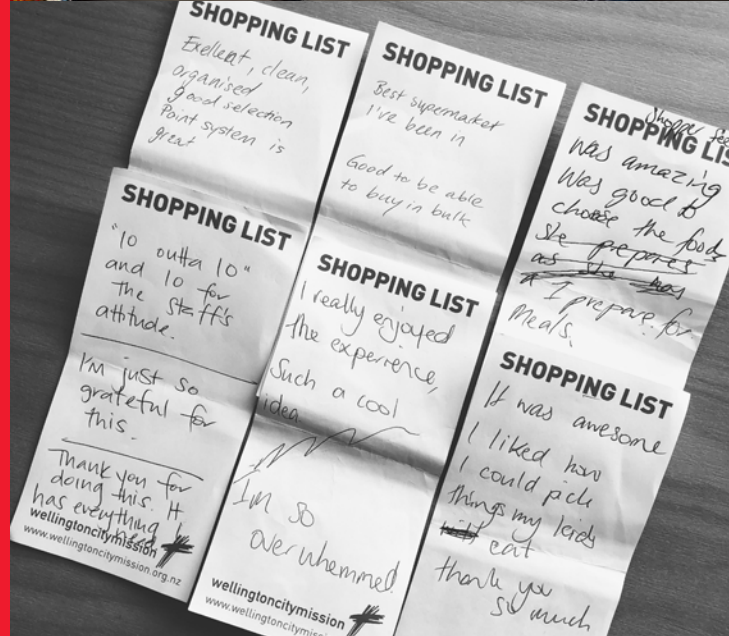 SHOPPING LIST
Exellent, clean,
organised
good selection
Point system is
great
SHOPPING LIST
Best supermarket
I've been in
Good to be able
to buy in bulk
Shopper fee
SHOPPING LIS
was amazing
Was good to
choose the foods
she prepares
as she has
I prepare for
Meals.
SHOPPING LIST
"10 outta 10"
and 10 for
the staff's
attitude.
I'm just so
grateful for
this.
Thank you for
doing this. It
has everything I
need
wellingtoncitymission
www.wellingtoncitymission.org.nz
SHOPPING LIST
I really enjoyed
the experience,
Such a cool
idea
I'm so
overwhemmed.
wellingtoncitymission
www.wellingtoncitymissi
SHOPPING LIST
It was awesome
I liked how
I could pick
things my kids
eat
thank you
so much